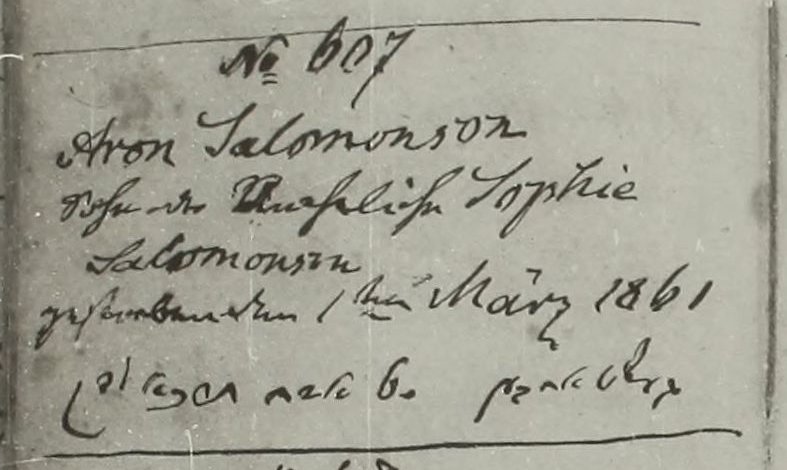 No 607
Aron Salomonson
Sohn der Unehelichen Sophie
Salomonson
gestorben den 1ten März 1861